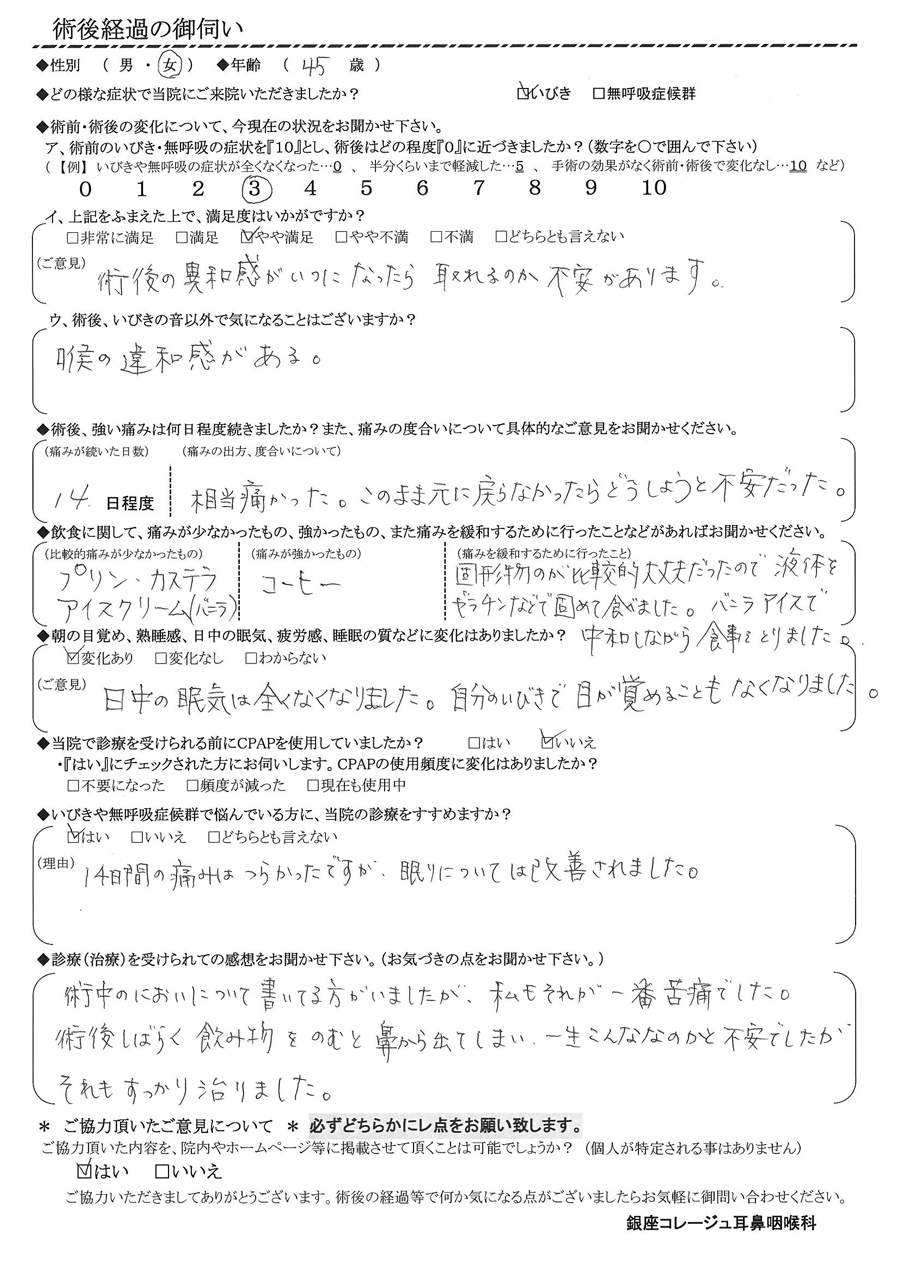 術後経過の御伺い
◆性別 ( 男 ・ 女 ) ◆年齢 ( 45 歳 )
◆どの様な症状で当院にご来院いただきましたか? ☑いびき □無呼吸症候群
◆術前・術後の変化について、今現在の状況をお聞かせ下さい。
ア、術前のいびき・無呼吸の症状を『10』とし、術後はどの程度『0』に近づきましたか?(数字を○で囲んで下さい)
(【例】 いびきや無呼吸の症状が全くなくなった…0 、 半分くらいまで軽減した…5 、 手術の効果がなく術前・術後で変化なし…10 など)
0 1 2 3 4 5 6 7 8 9 10
イ、上記をふまえた上で、満足度はいかがですか?
□非常に満足 □満足 ☑やや満足 □やや不満 □不満 □どちらとも言えない
(ご意見) 術後の異和感がいつになったら 取れるのか 不安があります。
ウ、術後、いびきの音以外で気になることはございますか?
喉の違和感がある。
◆術後、強い痛みは何日程度続きましたか?また、痛みの度合いについて具体的なご意見をお聞かせください。
(痛みが続いた日数) (痛みの出方、度合いについて)
14 日程度 相当痛かった。このまま元に戻らなかったらどうしようと不安だった。
◆飲食に関して、痛みが少なかったもの、強かったもの、また痛みを緩和するために行ったことなどがあればお聞かせください。
(比較的痛みが少なかったもの) (痛みが強かったもの) (痛みを緩和するために行ったこと)
プリン・カステラ コーヒー 固形物のが比較的大丈夫だったので 液体を
アイスクリーム(バニラ) ゼラチンなどで固めて食べました。 バニラアイスで
◆朝の目覚め、熟睡感、日中の眠気、疲労感、睡眠の質などに変化はありましたか? 中和しながら 食事をとりました。
☑変化あり □変化なし □わからない
(ご意見) 日中の眠気は全くなくなりました。自分のいびきで 目が覚めることも なくなりました。
◆当院で診療を受けられる前にCPAPを使用していましたか? □はい ☑いいえ
・『はい』にチェックされた方にお伺いします。CPAPの使用頻度に変化はありましたか?
□不要になった □頻度が減った □現在も使用中
◆いびきや無呼吸症候群で悩んでいる方に、当院の診療をすすめますか?
☑はい □いいえ □どちらとも言えない
(理由) 14日間の痛みは つらかったですが、眠りについては改善されました。
◆診療(治療)を受けられての感想をお聞かせ下さい。(お気づきの点をお聞かせ下さい。)
術中のにおいについて 書いてる方がいましたが、私もそれが一番苦痛でした。
術後しばらく 飲み物 を のむと 鼻から出てしまい、一生こんななのかと 不安でしたが
それもすっかり治りました。
* ご協力頂いたご意見について * 必ずどちらかにレ点をお願い致します。
ご協力頂いた内容を、院内やホームページ等に掲載させて頂くことは可能でしょうか? (個人が特定される事はありません)
☑はい □いいえ
ご協力いただきましてありがとうございます。術後の経過等で何か気になる点がございましたらお気軽に御問い合わせください。
銀座コレージュ耳鼻咽喉科